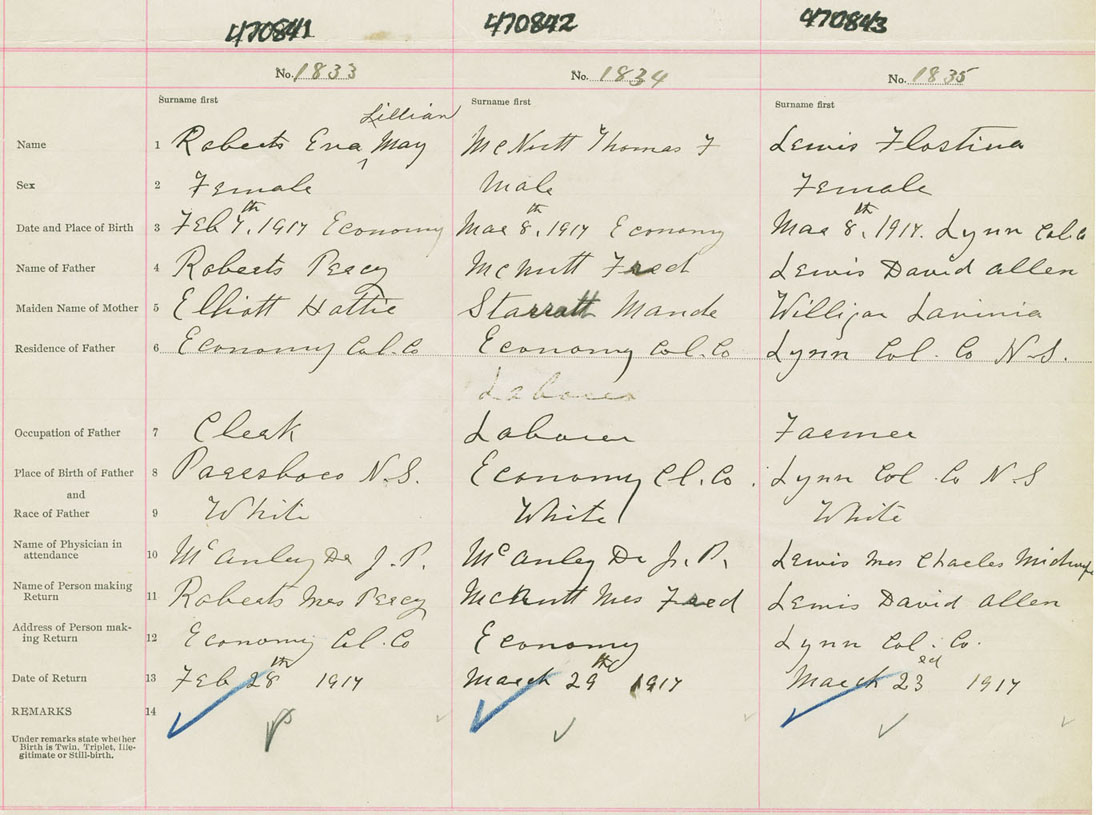 470841 470842 470843
No. 1833 No. 1834 No. 1835
Surname first Surname first Surname first
Lillian
Name 1 Roberts Eva May McNutt Thomas F Lewis Flostina
Sex 2 Female Male Female
Date and Place of Birth 3 Feb 7th, 1917 Economy Mar 8th, 1917 Economy Mar 8th, 1917. Lynn Col. Co
Name of Father 4 Roberts Percy McNutt Fred Lewis David Allen
Maiden Name of Mother 5 Elliott Hattie Starratt Maude Willigar Lavinia
Residence of Father 6 Economy Col. Co Economy Col. Co Lynn Col. Co N.S.
Laborer
Occupation of Father 7 Clerk Laborer Farmer
Place of Birth of Father 8 Parrsboro N.S. Economy Cl. Co. Lynn Col. Co N.S
and
Race of Father 9 White White White
Name of Physician in
attendance 10 McAnley Dr J. P. McAnley Dr J. P. Lewis Mrs Charles Midwife
Name of Person making
Return 11 Roberts Mrs Percy McNutt Mrs Fred Lewis David Allen
Address of Person mak-
ing Return 12 Economy Col. Co Economy Lynn Col. Co.
Date of Return 13 Feb 28th 1917 March 29th 1917 March 23rd 1917
REMARKS 14
Under remarks state whether
Birth is Twin, Triplet, Ille-
gitimate or Still-birth.